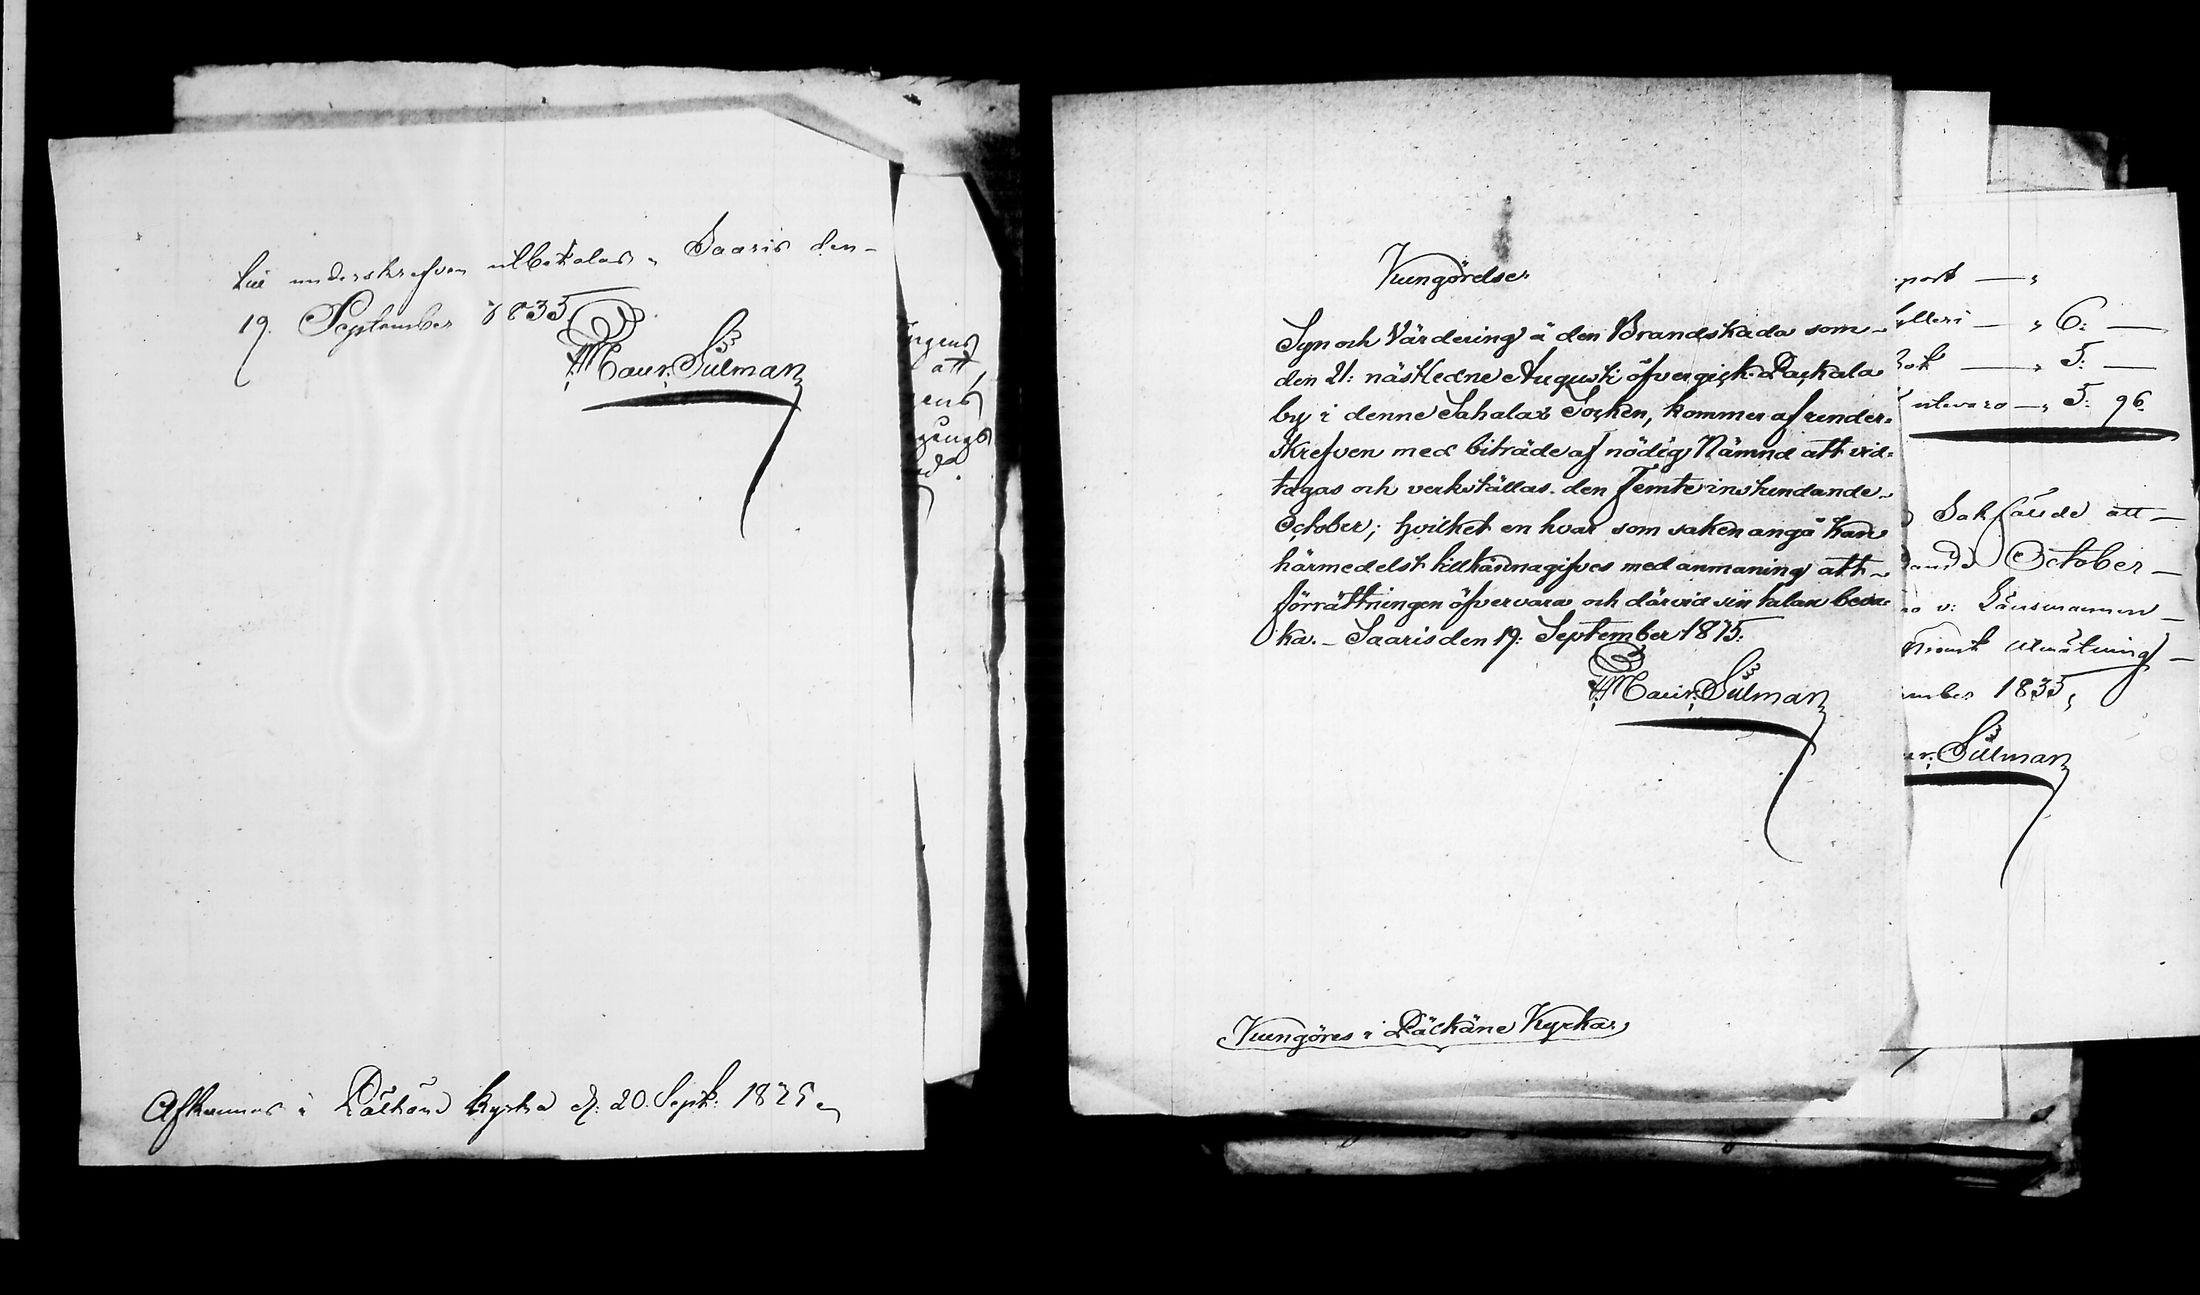 till underskrefven utbetalas. Saaris den
19. September 1835.
Maur. Silman
Afkunnas i Pälkäne kyrka d. 20. Sept. 1835
ingens
att
ens
gångs
Kungörelse
Syn och Värdering å den Brandskada som
den 21: nästledne Augusti öfvergick Packala
by i denne Sahalax Socken, kommer af under-
skrefven med biträde af nödig Nämnd att vid-
tagas och verkställas den Femte instundande
October; hvilket en hvar som saken angå kan
härmedelst tillkännagifves med anmaning att
förrättningen öfvervara och därvid sin talan beva-
ka. Saaris den 19: September 1835.
Maur. Silman
Kungöres i Pälkäne Kyrka
port — "
ylleri — " 6: —
Bok — " 5: —
utevaro — " 5: 96.
Sakfälde att
October
v: Länsmannen
Utmätning
mber 1835,
ur. Silman